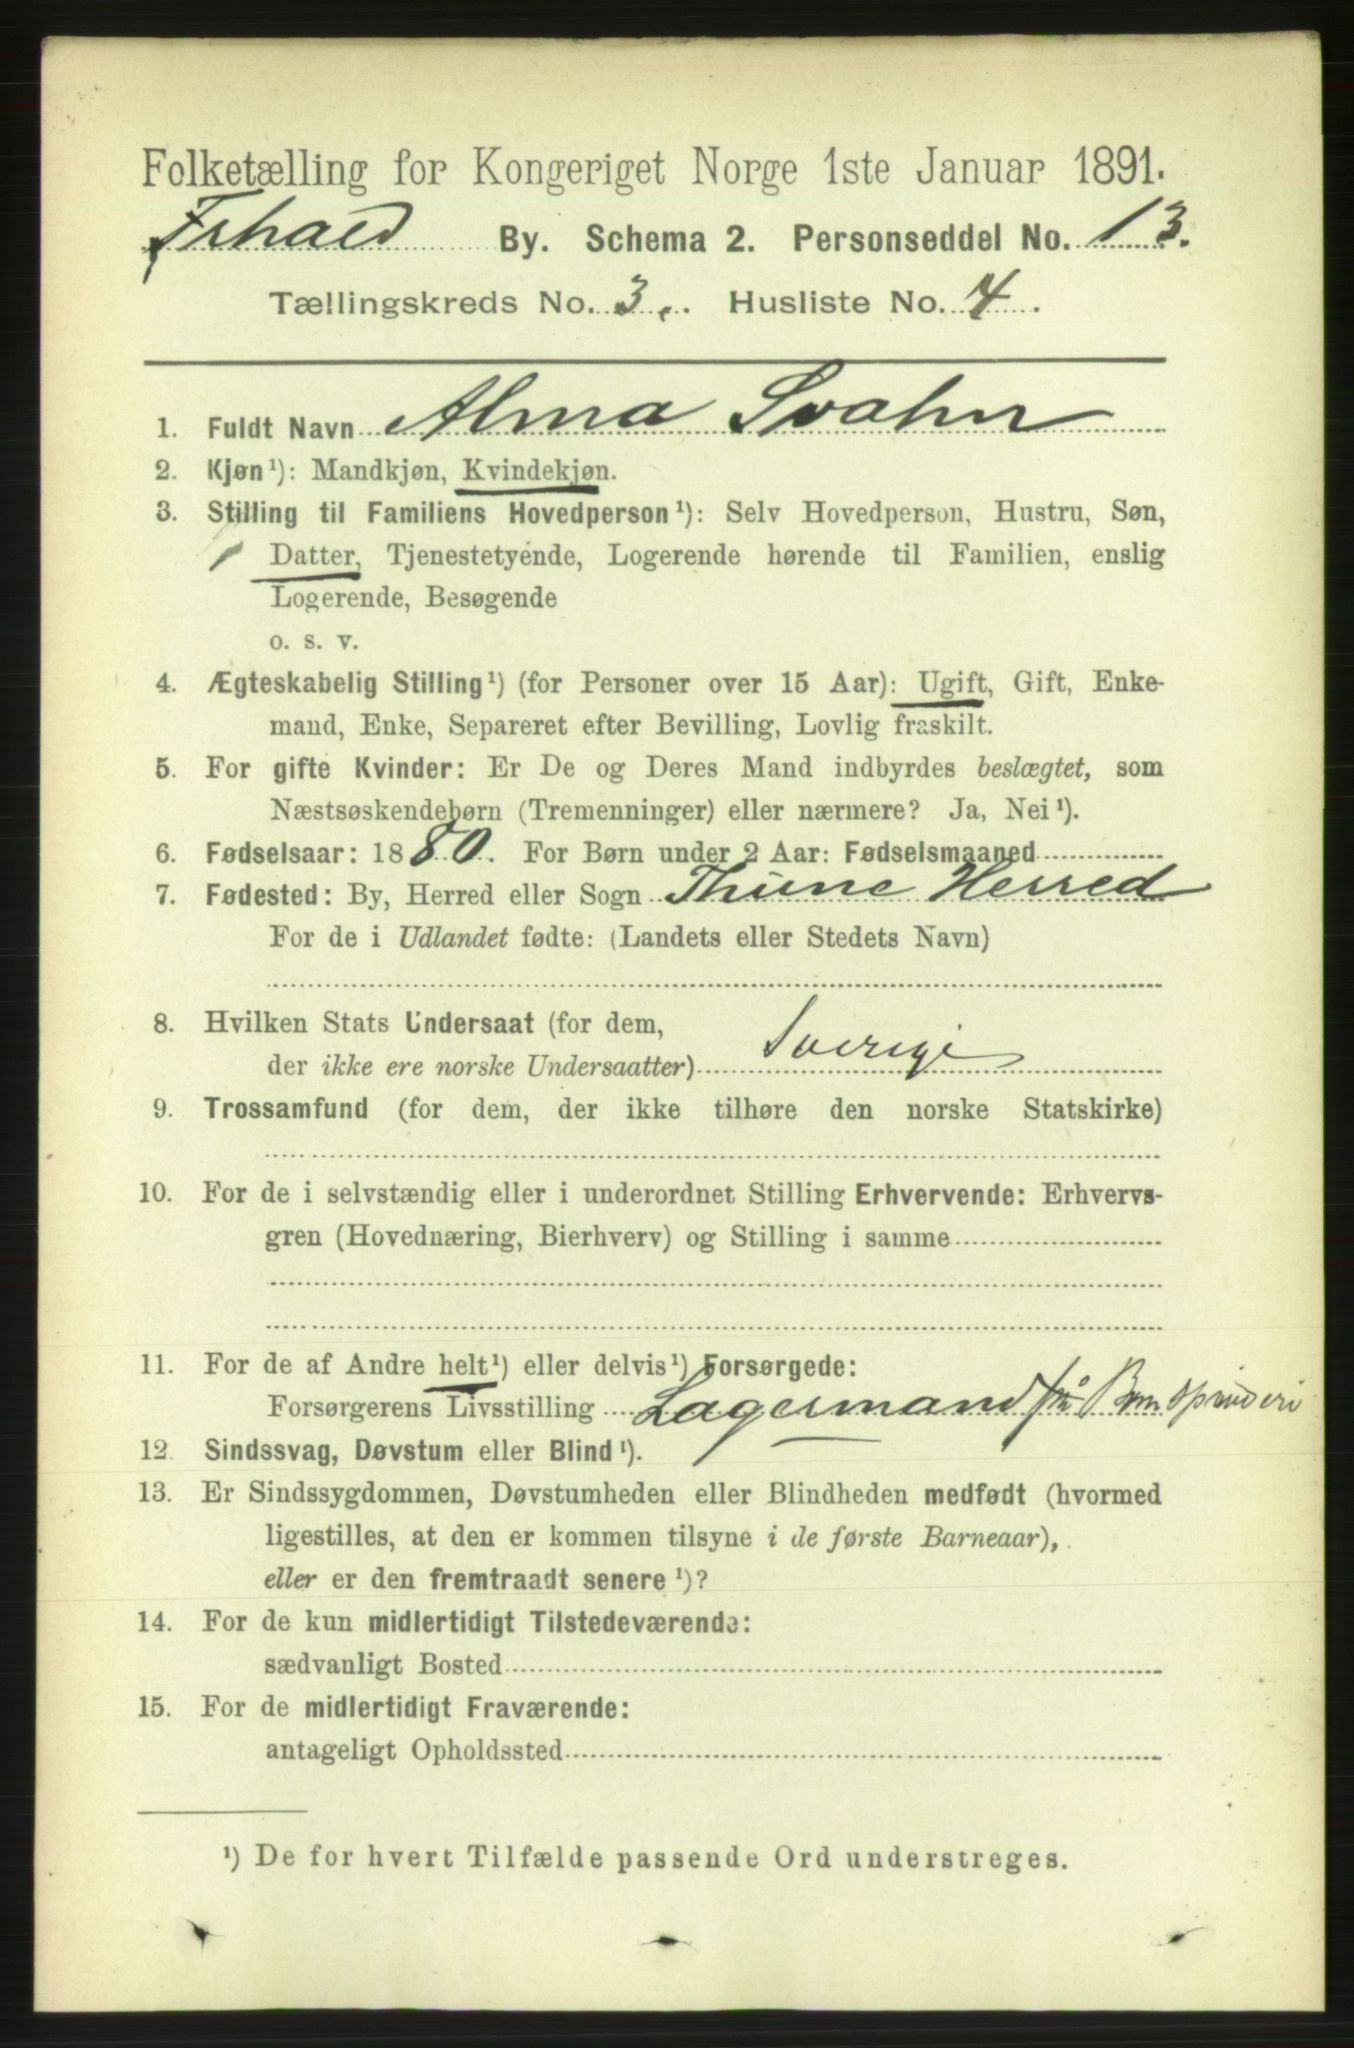 Folketælling for Kongeriget Norge 1ste Januar 1891.
Frhald By. Schema 2. Personseddel No. 13.
Tællingskreds No. 3. Husliste No. 4.
1. Fuldt Navn Alma Svahn
2. Kjøn¹): Mandkjøn, Kvindekjøn.
3. Stilling til Familiens Hovedperson¹): Selv Hovedperson, Hustru, Søn,
Datter, Tjenestetyende, Logerende hørende til Familien, enslig
Logerende, Besøgende
o. s. v.
4. Ægteskabelig Stilling¹) (for Personer over 15 Aar): Ugift, Gift, Enke-
mand, Enke, Separeret efter Bevilling, Lovlig fraskilt.
5. For gifte Kvinder: Er De og Deres Mand indbyrdes beslægtet, som
Næstsøskendebørn (Tremenninger) eller nærmere? Ja, Nei¹).
6. Fødselsaar: 1880. For Børn under 2 Aar: Fødselsmaaned
7. Fødested: By, Herred eller Sogn Thune Herred
For de i Udlandet fødte: (Landets eller Stedets Navn)
8. Hvilken Stats Undersaat (for dem,
der ikke ere norske Undersaatter) Sverige
9. Trossamfund (for dem, der ikke tilhøre den norske Statskirke)
10. For de i selvstændig eller i underordnet Stilling Erhvervende: Erhvervs-
gren (Hovednæring, Bierhverv) og Stilling i samme
11. For de af Andre helt¹) eller delvis¹) Forsørgede:
Forsørgerens Livsstilling Lagermand på Bomspinderi
12. Sindssvag, Døvstum eller Blind¹).
13. Er Sindssygdommen, Døvstumheden eller Blindheden medfødt (hvormed
ligestilles, at den er kommen tilsyne i de første Barneaar),
eller er den fremtraadt senere¹)?
14. For de kun midlertidigt Tilstedeværende:
sædvanligt Bosted
15. For de midlertidigt Fraværende:
antageligt Opholdssted
¹) De for hvert Tilfælde passende Ord understreges.